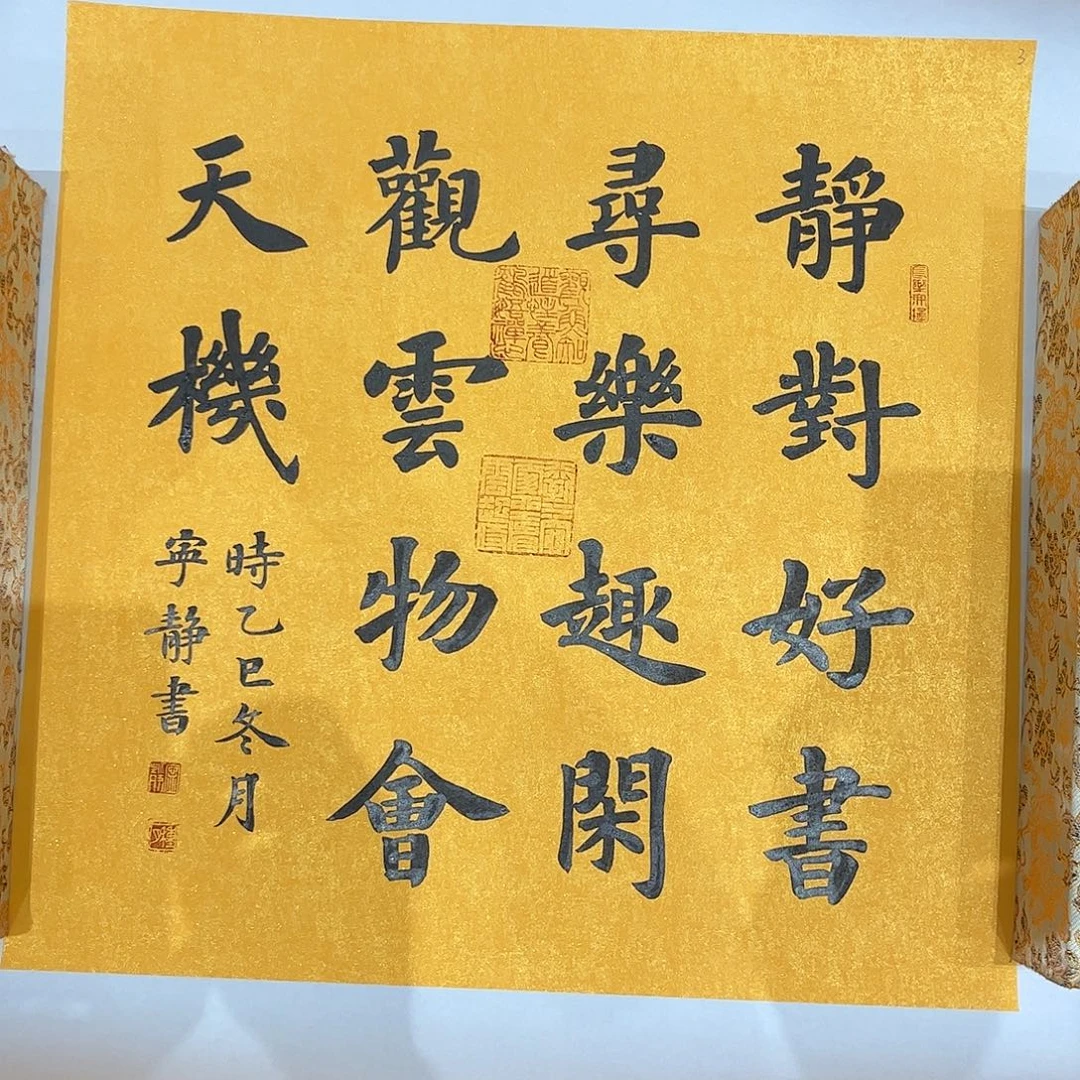 靜對好書
尋樂趣閑
觀雲物會
天機
時乙巳冬月
寧靜書
3